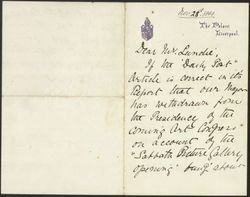 Nov. 28th
The Palace
Liverpool.
Dear Mr. Lundie,
If the "Daily Post"
Article is correct in its
Report that our Mayor
has withdrawn from
the Presidence of the
coming Art Congress
on account of the
"Sabbath Picture Gallery
opening" about